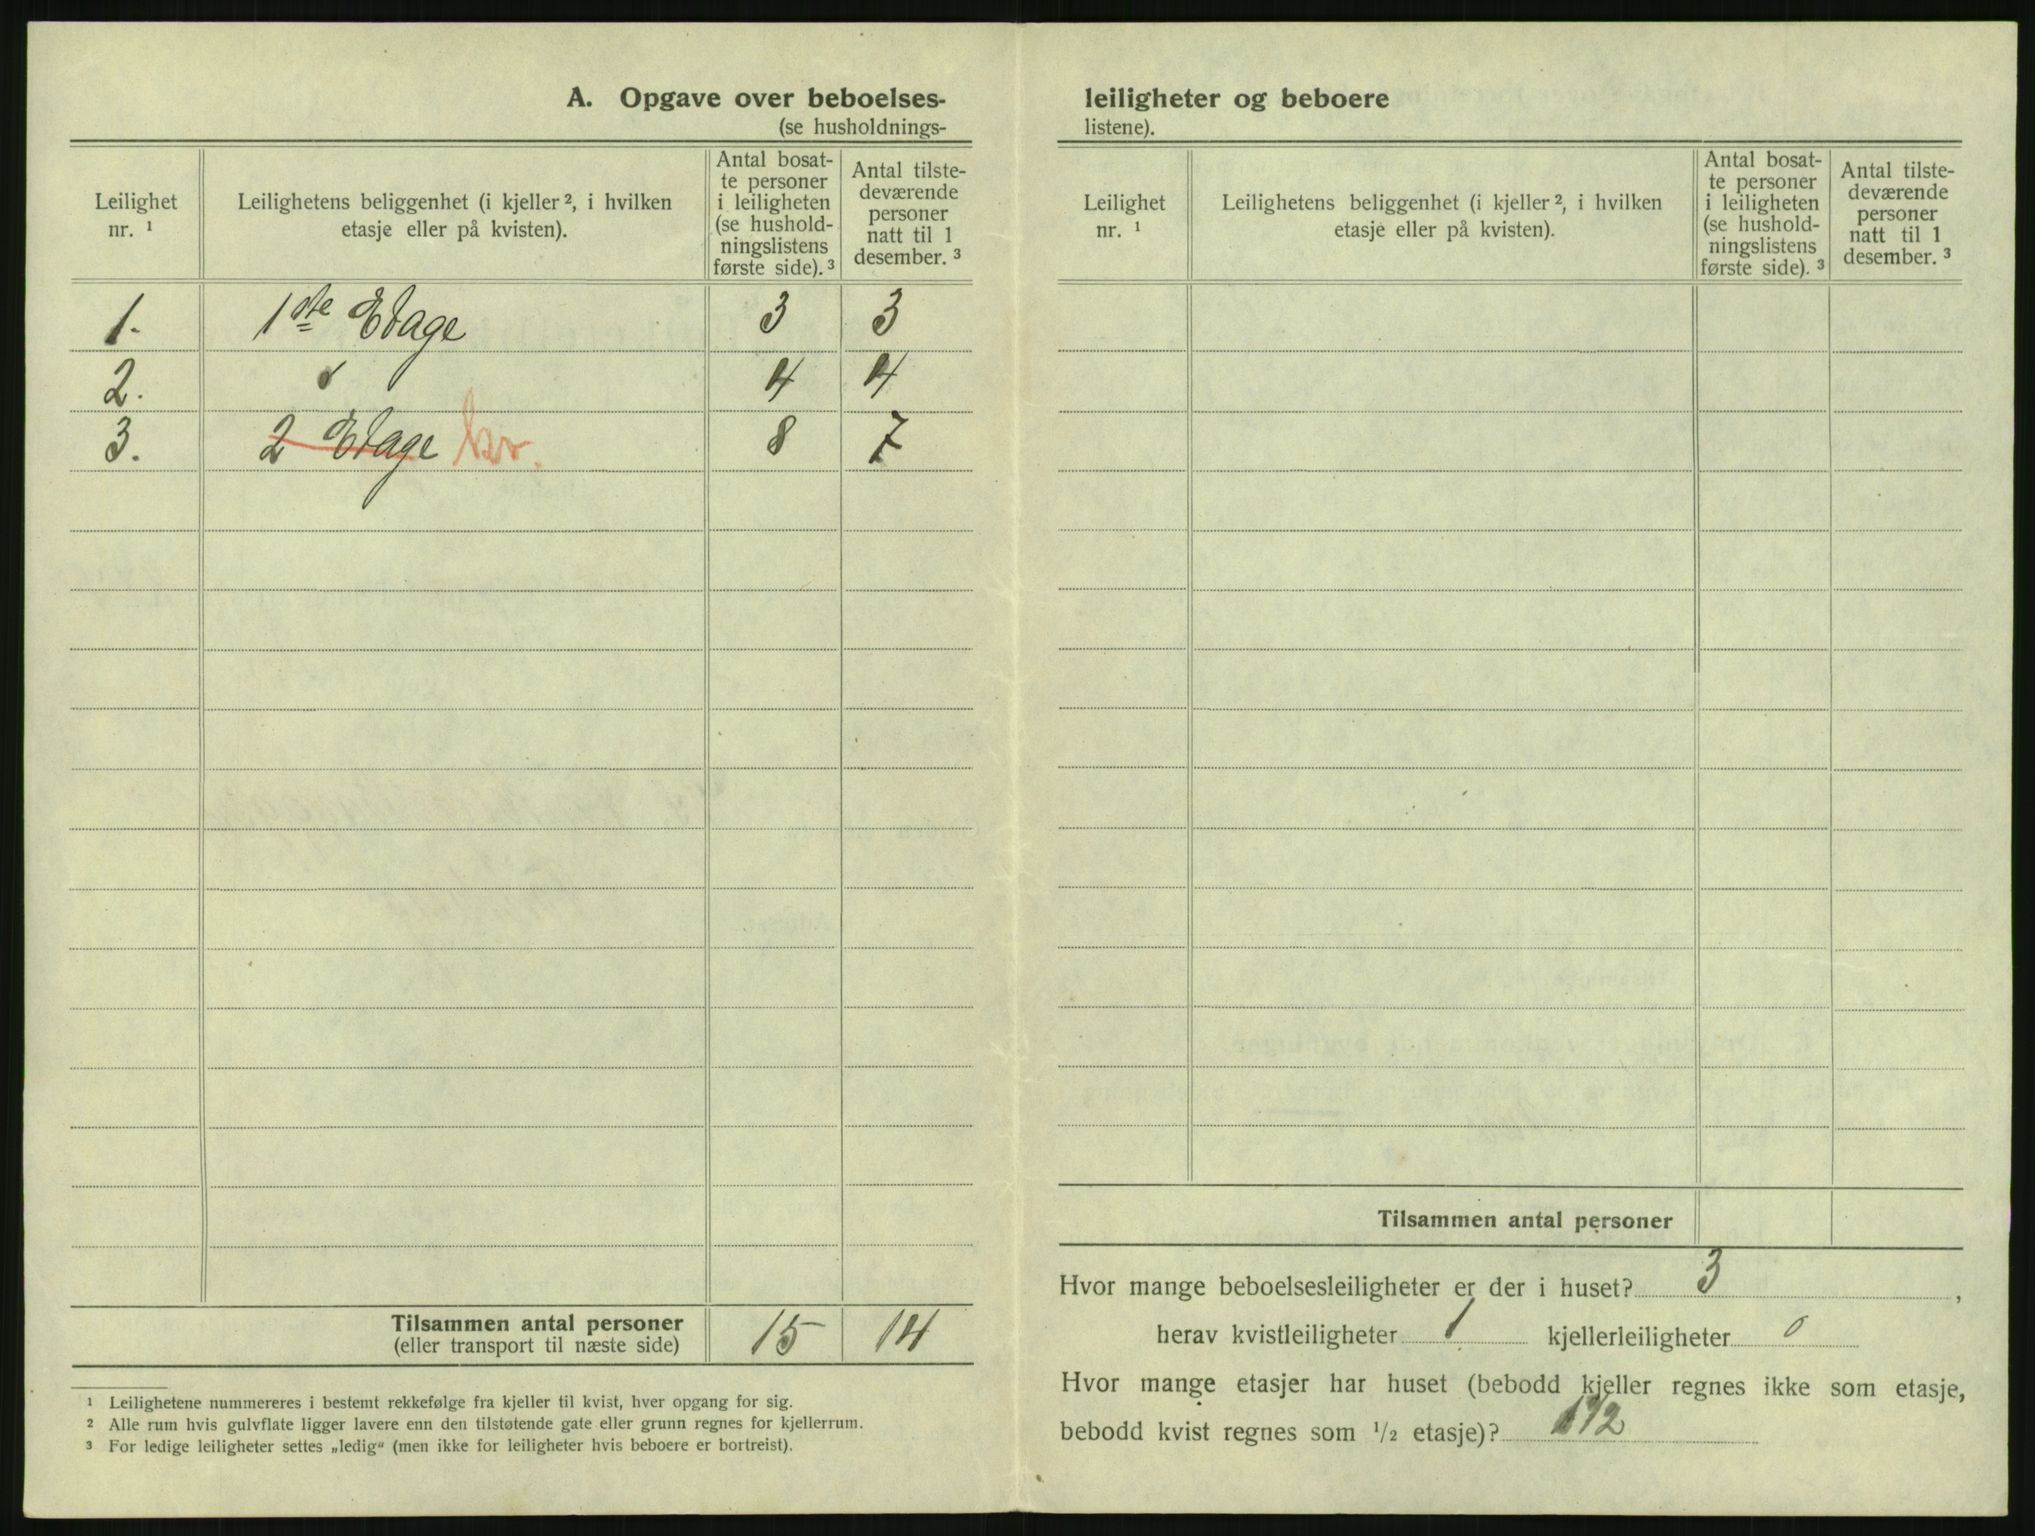 A. Opgave over beboelses-
(se husholdnings-
Leilighet
nr. ¹
Leilighetens beliggenhet (i kjeller ², i hvilken
etasje eller på kvisten).
Antal bosat-
te personer
i leiligheten
(se hushold-
ningslistens
første side). ³
Antal tilste-
deværende
personer
natt til 1
desember. ³
1. 1ste Etage 3 3
2. 4 4
3. 2 Etage kv. 8 7
Tilsammen antal personer 15 14
(eller transport til næste side)
¹ Leilighetene nummereres i bestemt rekkefølge fra kjeller til kvist, hver opgang for sig.
² Alle rum hvis gulvflate ligger lavere enn den tilstøtende gate eller grunn regnes for kjellerrum.
³ For ledige leiligheter settes „ledig“ (men ikke for leiligheter hvis beboere er bortreist).
leiligheter og beboere
listene).
Leilighet
nr. ¹
Leilighetens beliggenhet (i kjeller ², i hvilken
etasje eller på kvisten).
Antal bosat-
te personer
i leiligheten
(se hushold-
ningslistens
første side). ³
Antal tilste-
deværende
personer
natt til 1
desember. ³
Tilsammen antal personer
Hvor mange beboelsesleiligheter er der i huset? 3 ,
herav kvistleiligheter 1 kjellerleiligheter 0
Hvor mange etasjer har huset (bebodd kjeller regnes ikke som etasje,
bebodd kvist regnes som ½ etasje)? 1½